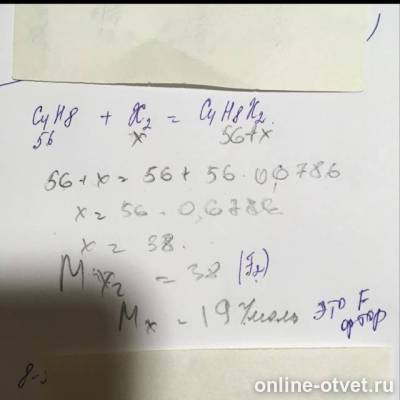 C4H8 + X2 = C4H8X2
56 x 56+x
56+x = 56 + 56 · 0,6786
x = 56 · 0,6786
x = 38.
Mx2 = 38 (F2)
Mx = 19 г/моль это F
фтор
8-
online-otvet.ru